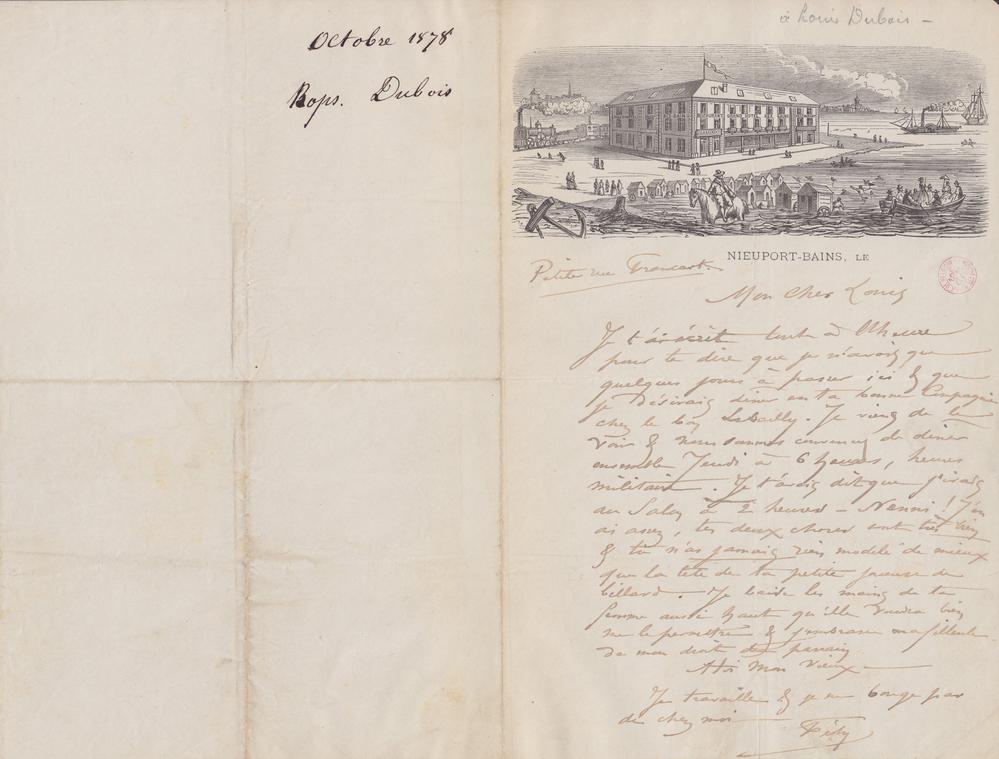 Octobre 1878
Rops. Dubois
à Louis Dubois -
NIEUPORT-BAINS, LE
Petite rue Froncart.
Mon Cher Louis
Je t'ai écrit tout à l'heure
pour te dire que je n'avais que
quelques jours à passer ici & que
je désirais diner en ta bonne Compagnie
chez le bon Lebailly. Je viens de le
voir & nous sommes convenus de diner
ensemble Jeudi à 6 heures, heures
militaire. Je t'avais dit que j'irais
au Salon à 2 heures - Nenni! J'en
ai assez, tes deux choses sont très bien
& tu n'as jamais rien modelé de mieux
que la tête de ta petite joueuse de
billard. Je baise les mains de ta
femme aussi haut qu'elle voudra bien
me le permettre & j'embrasse ma filleule
de mon droit de parrain.
à toi mon vieux
Je travaille & je ne bouge pas
de chez moi
Fély